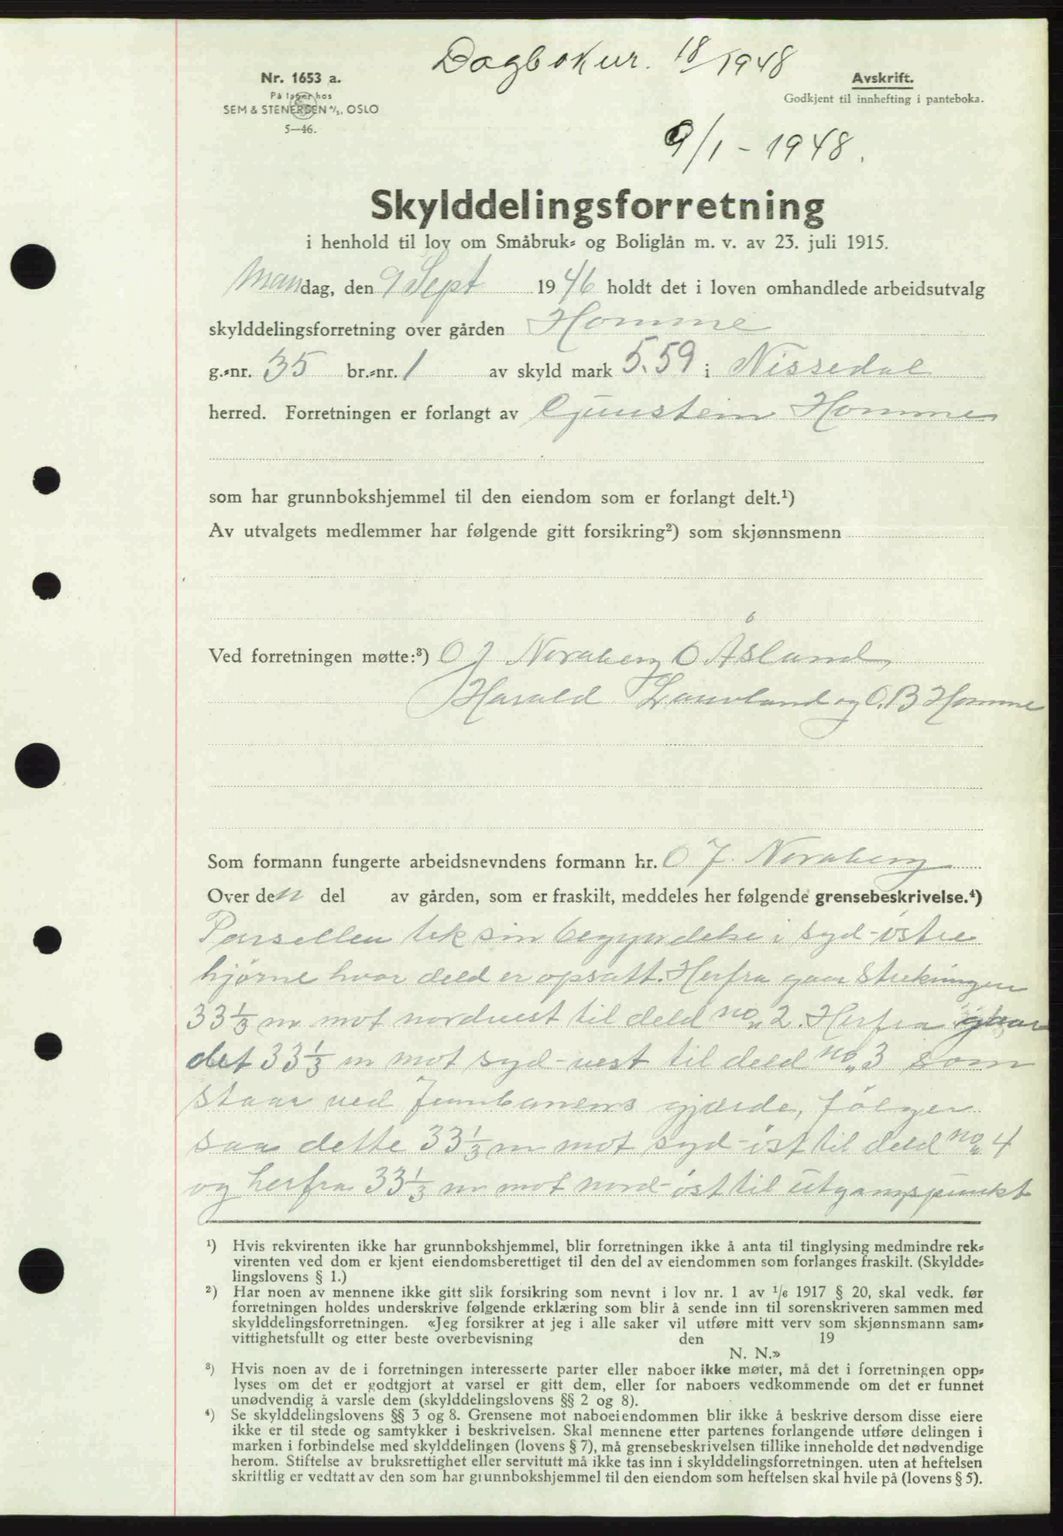 Dagboknr. 18/1948
Nr. 1653 a.
På lager hos
SEM & STENERSEN A/S, OSLO
5—46.
Avskrift.
Godkjent til innhefting i panteboka.
9/1 - 1948.
Skylddelingsforretning
i henhold til lov om Småbruk- og Boliglån m. v. av 23. juli 1915.
Mandag, den 9 Sept 1946 holdt det i loven omhandlede arbeidsutvalg
skylddelingsforretning over gården Homme
g.-nr. 35 br.-nr. 1 av skyld mark 5.59 i Nissedal
herred. Forretningen er forlangt av Gjunstein Homme
som har grunnbokshjemmel til den eiendom som er forlangt delt.¹)
Av utvalgets medlemmer har følgende gitt forsikring²) som skjønnsmenn
Ved forretningen møtte:³) O J Noraberg O Åsland
Harald Lauvland og O. B Homme
Som formann fungerte arbeidsnevndens formann hr. O J. Noraberg
Over den del av gården, som er fraskilt, meddeles her følgende grensebeskrivelse.⁴)
Parsellen tek sin begyndelse i syd-østre
hjørne hvor deld er opsatt. Herfra gaar strekningen
33⅓ m mot nordvest til deld no. 2. Herfra gaar
det 33⅓ m mot syd-vest til deld no. 3 som
staar ved Jernbanens gjærde, følger
saa dette 33⅓ m mot syd-øst til deld no. 4
og herfra 33⅓ m mot nord-øst til utgangspunkt
¹) Hvis rekvirenten ikke har grunnbokshjemmel, blir forretningen ikke å anta til tinglysing medmindre rek-
virenten ved dom er kjent eiendomsberettiget til den del av eiendommen som forlanges fraskilt. (Skyldde-
lingslovens § 1.)
²) Har noen av mennene ikke gitt slik forsikring som nevnt i lov nr. 1 av 1/6 1917 § 20, skal vedk. før
forretningen holdes underskrive følgende erklæring som blir å sende inn til sorenskriveren sammen med
skylddelingsforretningen. «Jeg forsikrer at jeg i alle saker vil utføre mitt verv som skjønnsmann sam-
vittighetsfullt og etter beste overbevisning den 19
N. N.»
³) Hvis noen av de i forretningen interesserte parter eller naboer ikke møter, må det i forretningen opp-
lyses om det er godtgjort at varsel er gitt dem, eller for naboers vedkommende om det er funnet
unødvendig å varsle dem (skylddelingslovens §§ 2 og 8).
⁴) Se skylddelingslovens §§ 3 og 8. Grensene mot naboeiendommen blir ikke å beskrive dersom disse eiere
ikke er til stede og samtykker i beskrivelsen. Skal mennene etter partenes forlangende utføre delingen i
marken i forbindelse med skylddelingen (lovens § 7), må grensebeskrivelsen tillike inneholde det nødvendige
herom. Stiftelse av bruksrettighet eller servitutt må ikke tas inn i skylddelingsforretningen. uten at heftelsen
skriftlig er vedtatt av den som har grunnbokshjemmel til den eiendom som heftelsen skal hvile på (lovens § 5).